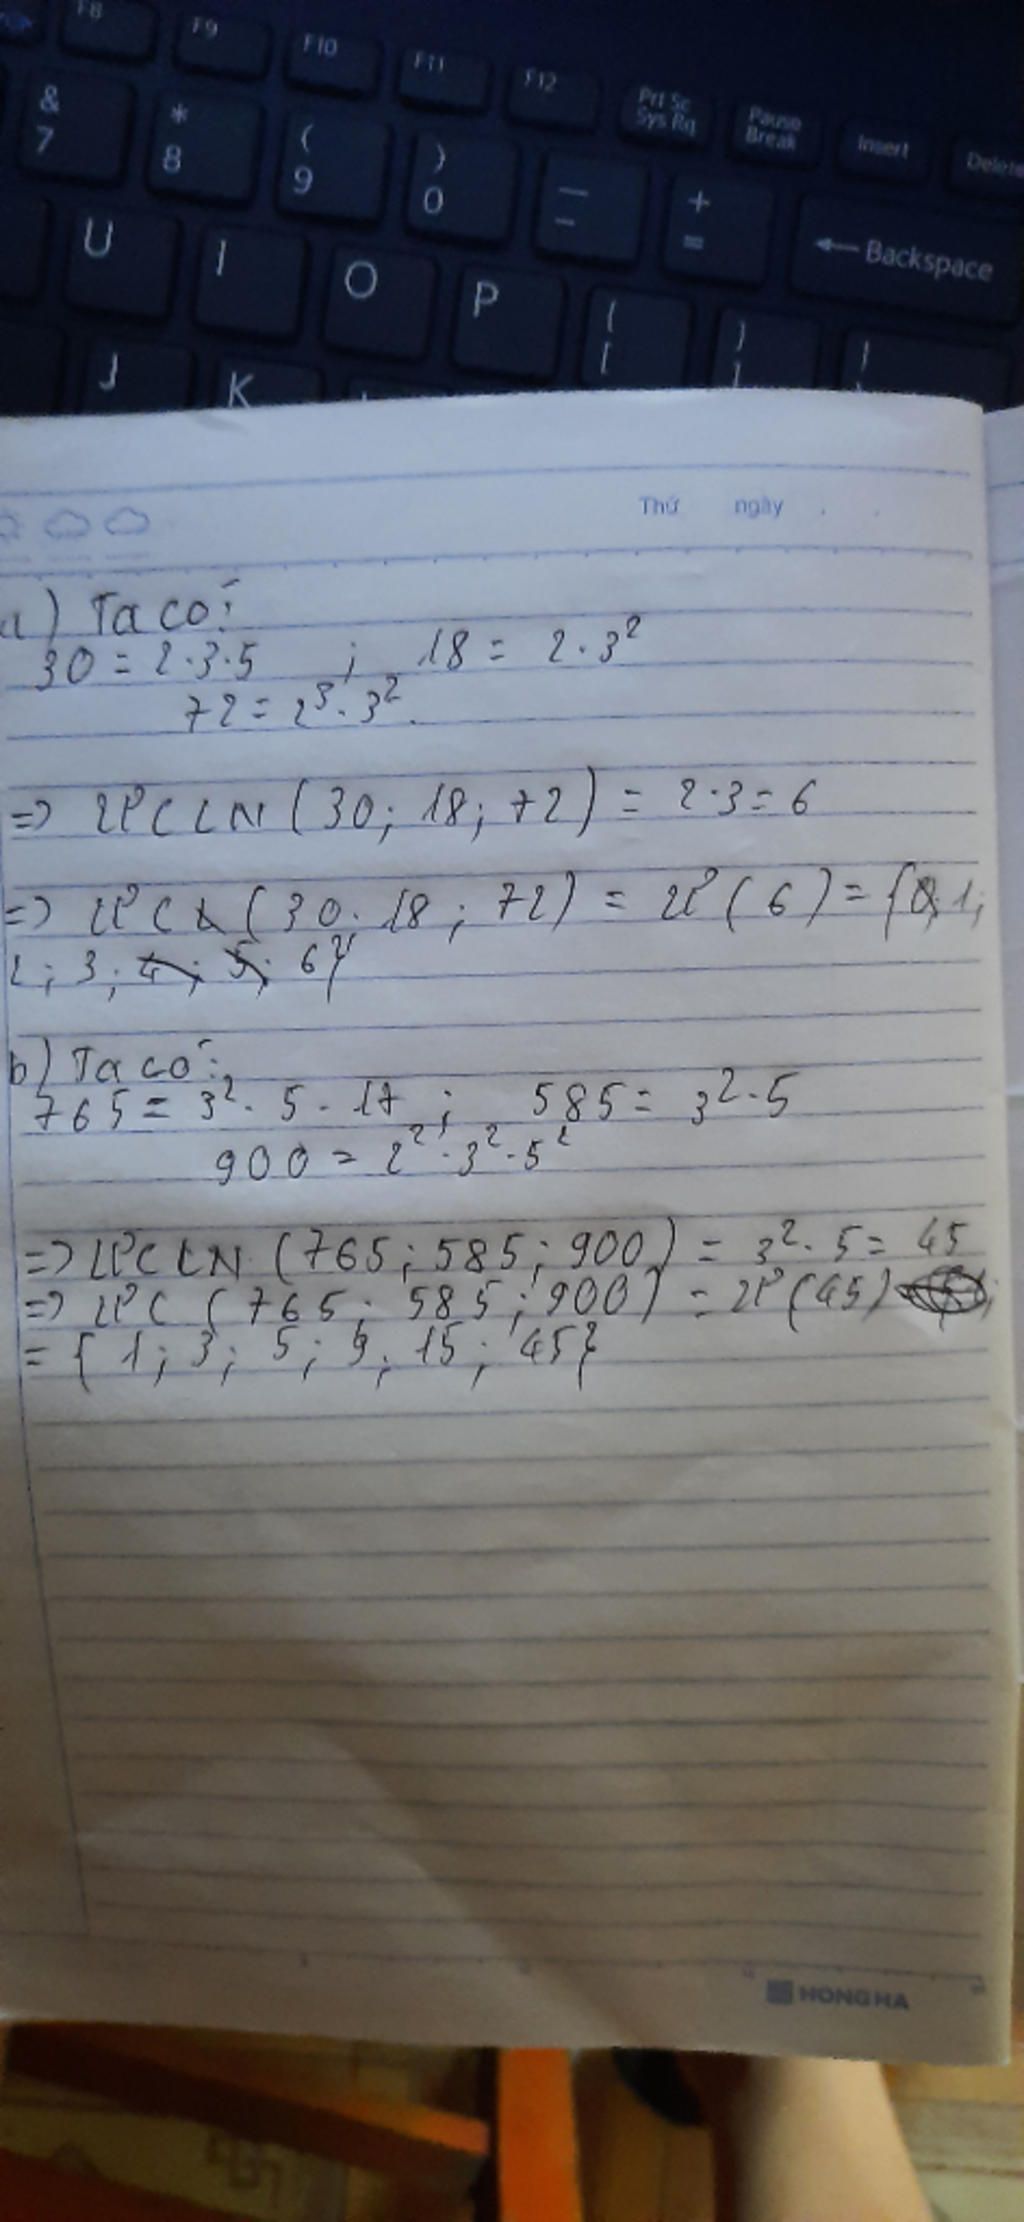 F8 F9 F10 F11 F12 Prt Sc Sys Rq Pause Break Insert Delete
& 7 * 8 ( 9 ) 0 — - + = ← Backspace
U I O P { [ } ] |
J K
Thứ ngày
a) Ta có:
30 = 2·3·5 ; 18 = 2·3²
72 = 2³·3².
=> ƯCLN (30; 18; 72) = 2·3 = 6
=> ƯC (30; 18; 72) = Ư(6) = {1;
2; 3; 4; 5; 6}
b) Ta có:
765 = 3²·5·17 ; 585 = 3²·5
900 = 2²·3²·5²
=> ƯCLN (765; 585; 900) = 3²·5 = 45
=> ƯC (765; 585; 900) = Ư(45)
= {1; 3; 5; 9; 15; 45}
HONG HA